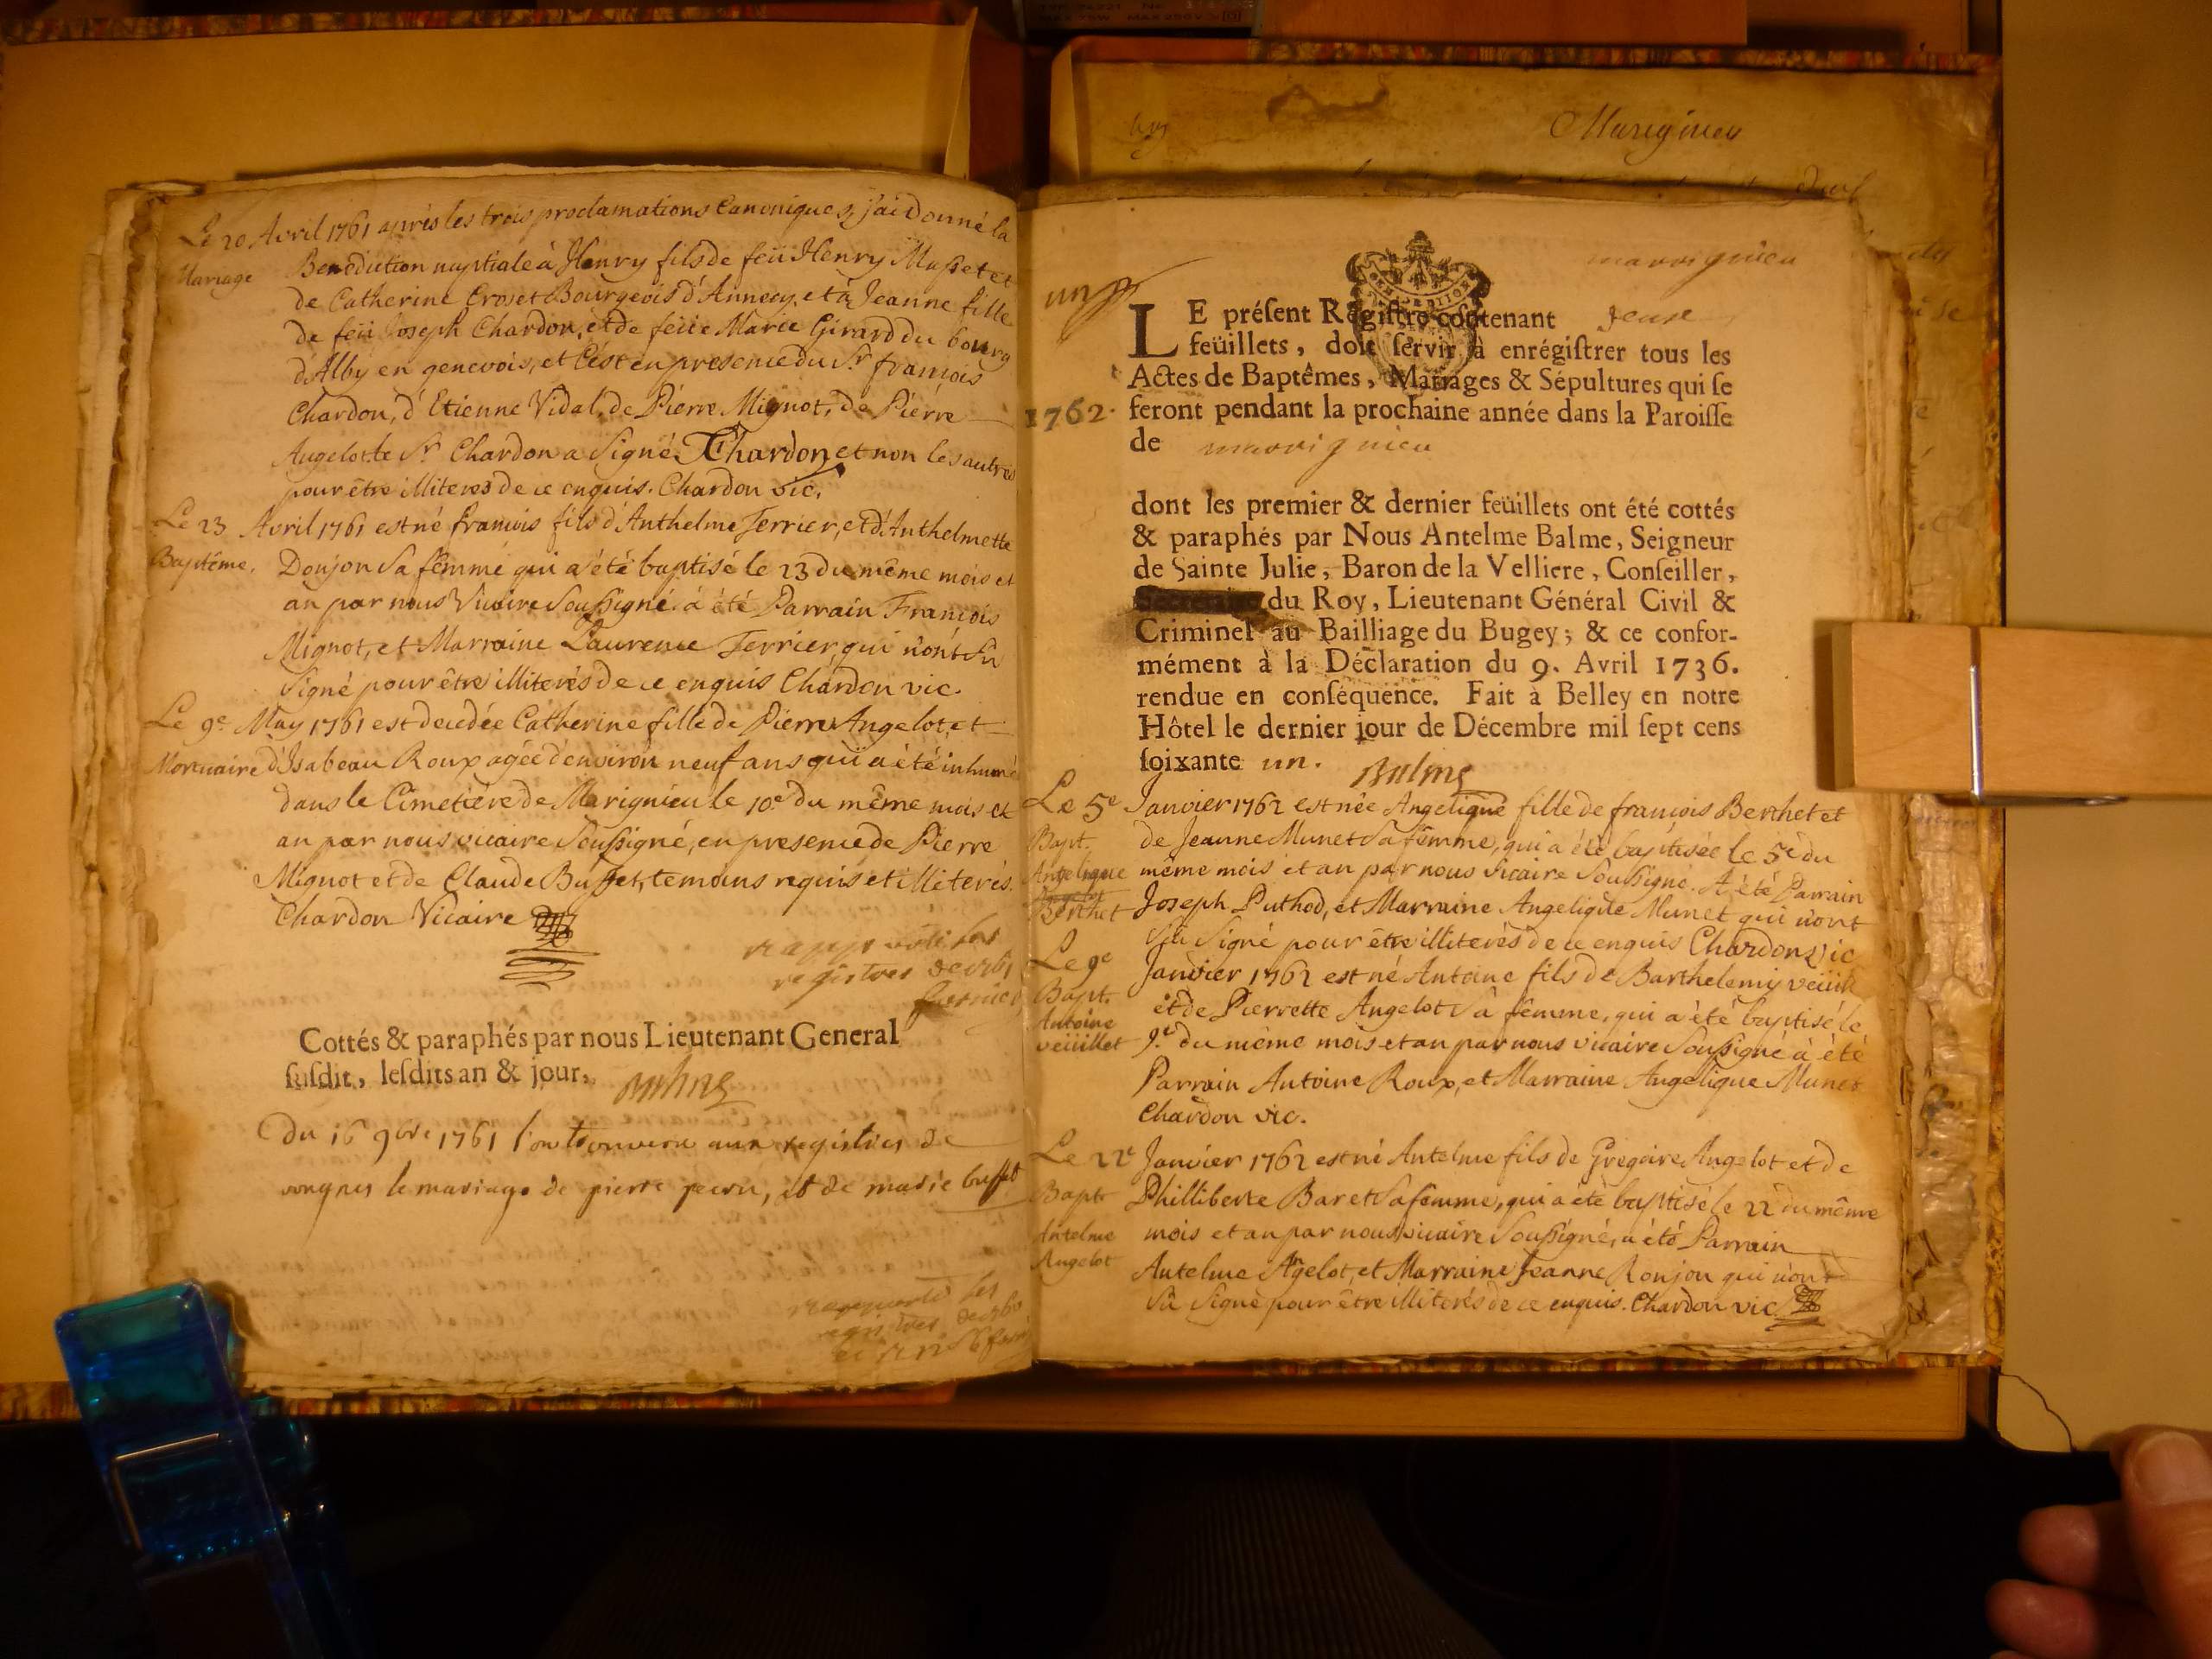 Le 20 Avril 1761 après les trois proclamations Canoniques, j'ai donné la
Mariage
Benediction nuptiale à Henry fils de feü Henry Musset et
de Catherine Croset Bourgeois d'Annecy, et à Jeanne fille
de feü Joseph Chardon, et de feüe Marie Girard du bourg
d'Alby en genevois, et c'est en presence du Sr. françois
Chardon, d'Etienne Vidal, de Pierre Mignot, de Pierre
Angelot. le Sr. Chardon a Signé Chardon et non les autres
pour être illiterés de ce enquis. Chardon vic.
Le 23 Avril 1761 est né francois fils d'Anthelme Terrier, et d'Anthelmette
Baptême. Donjon Sa femme qui a été baptisé le 23 du même mois et
an par nous Vicaire Soussigné. à été Parrain Francois
Mignot, et Marraine Laurence Terrier, qui n'ont Sû
Signé pour être illiterés de ce enquis Chardon vic.
Le 9e May 1761 est decedée Catherine fille de Pierre Angelot, et
Mortuaire d'Isabeau Roux agée d'environ neuf ans qui a été inhumé
dans le Cimetière de Marignieu le 10e du même mois et
an par nous vicaire Soussigné, en presence de Pierre
Mignot et de Claude Buffet, temoins requis et illiterés.
Chardon Vicaire
registres de 1761
Cottés & paraphés par nous Lieutenant General
susdit, lesdits an & jour. Balme
Du 16 9bre 1761 l'on trouvera aux registres de
vongnes le mariage de pierre, et de marie buffet
les
registres
Marignieu
marrignieu
un
LE présent Registre contenant deux
feüillets, doit servir à enrégistrer tous les
Actes de Baptêmes, Mariages & Sépultures qui se
1762. feront pendant la prochaine année dans la Paroisse
de marrignieu
dont les premier & dernier feüillets ont été cottés
& paraphés par Nous Antelme Balme, Seigneur
de Sainte Julie, Baron de la Velliere, Conseiller,
du Roy, Lieutenant Général Civil &
Criminel au Bailliage du Bugey; & ce confor-
mément à la Déclaration du 9. Avril 1736.
rendue en conséquence. Fait à Belley en notre
Hôtel le dernier jour de Décembre mil sept cens
soixante un. Balme
Le 5e Janvier 1762 est née Angelique fille de françois Berthet et
Bapt. de Jeanne Munet Sa femme, qui a été baptisée le 5e du
Angelique même mois et an par nous Vicaire Soussigné. A été Parrain
Berthet Joseph Puthod, et Marraine Angelique Munet qui n'ont
Sû Signé pour être illiterés de ce enquis Chardon Vic
Le 9e Janvier 1762 est né Antoine fils de Barthelemy veüillet
Bapt. et de Pierrette Angelot Sa femme, qui a été baptisé le
Antoine
veüillet 9e du même mois et an par nous vicaire Soussigné à été
Parrain Antoine Roux, et Marraine Angelique Munet
Chardon vic.
Le 22e Janvier 1762 est né Antelme fils de Gregoire Angelot et de
Bapt. Philliberte Baret Sa femme, qui a été baptisé le 22e du même
Antelme mois et an par nous vicaire Soussigné, a été Parrain
Angelot Antelme Angelot, et Marraine Jeanne Ronjon qui n'ont
Sû Signé pour être illiterés de ce enquis. Chardon vic.